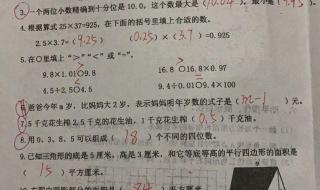 3.一个两位小数精确到十分位是10.0。这个数最大是(10.04),最小是(9.95)
4.根据算式25×37=925,在下面的括号里填上合适的数。
2.5×3.7=(9.25) (0.25)×(3.7)=0.925
5.在○里填上“>”“<”或“=”。
9.8×1.01○9.8 16.8○16.8×0.97
4.5÷2.5○4.5 9.4÷0.01○9.4×100
6.爸爸今年a岁,比妈妈大2岁,表示妈妈明年岁数的式子是(m-1)元。
7.5千克花生榨2.5千克的花生油,1千克花生榨(0.5)千克油。
8.用0、3、8、5可以组成(18)个不同的四位数。
9.已知三角形的底是5厘米,高是3厘米,和它等底等高的平行四边形的面积是
(15)平方厘米。